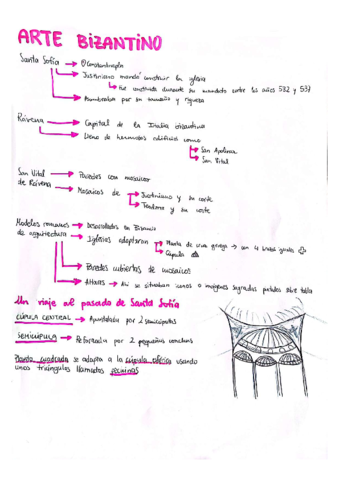 ARTE BIZANTINO
Santa Sofía → Constantinopla
→ Justiniano mandó construir la iglesia
→ Fue construida durante su mandato entre los años 532 y 537
→ Asombraba por su tamaño y riqueza
Rávena → Capital de la Italia bizantina
→ Lleno de hermosos edificios como
→ San Apolinar
→ San Vital
San Vital de Rávena → Paredes con mosaicos
→ Mosaicos de → Justiniano y su corte
→ Teodora y su corte
Modelos romanos de arquitectura → Desarrollados en Bizancio
→ Iglesias adoptaron → Planta de cruz griega → con 4 brazos iguales
→ Cúpula
→ Paredes cubiertas de mosaicos
→ Altares → Ahí se situaban iconos o imágenes sagradas pintadas sobre tabla
Un viaje al pasado de Santa Sofía
CÚPULA CENTRAL → Apuntalada por 2 semicúpulas
SEMICÚPULA → Reforzada por 2 pequeñas conchas
Planta cuadrada se adapta a la cúpula esférica usando
unos triángulos llamados pechinas